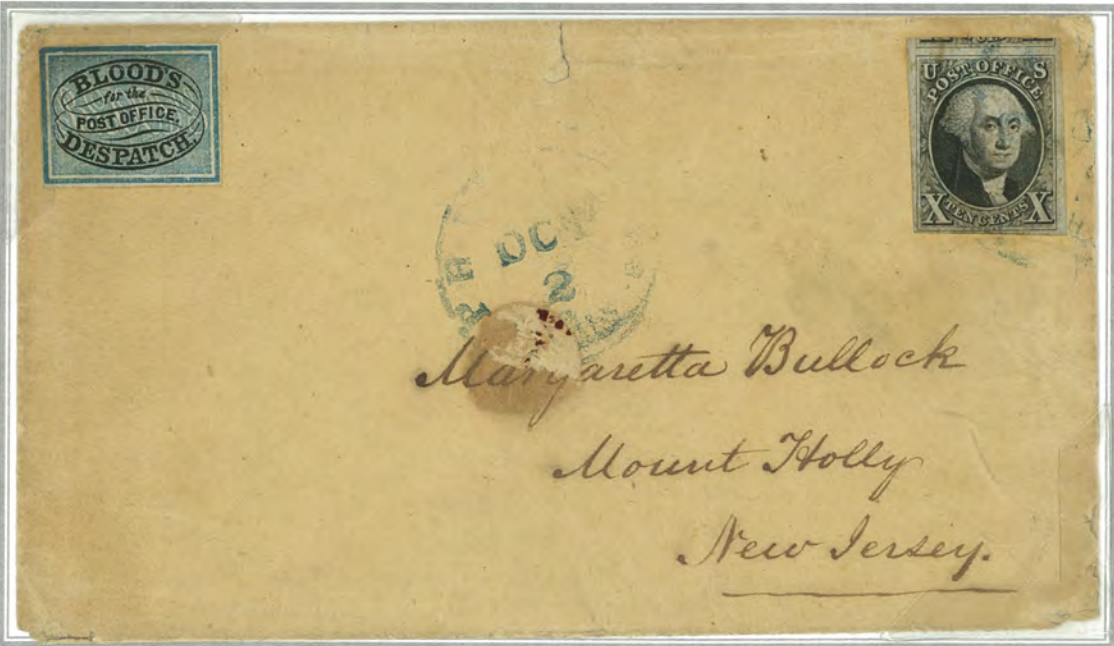 BLOOD'S
for the
POST OFFICE.
DESPATCH.
U S
POST OFFICE
X TEN CENTS X
OCT
2
Margaretta Bullock
Mount Holly
New Jersey.